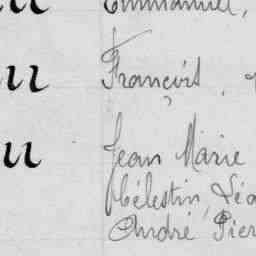 Emmanuel,
François,
Jean Marie
Célestin, Léo
André Pier